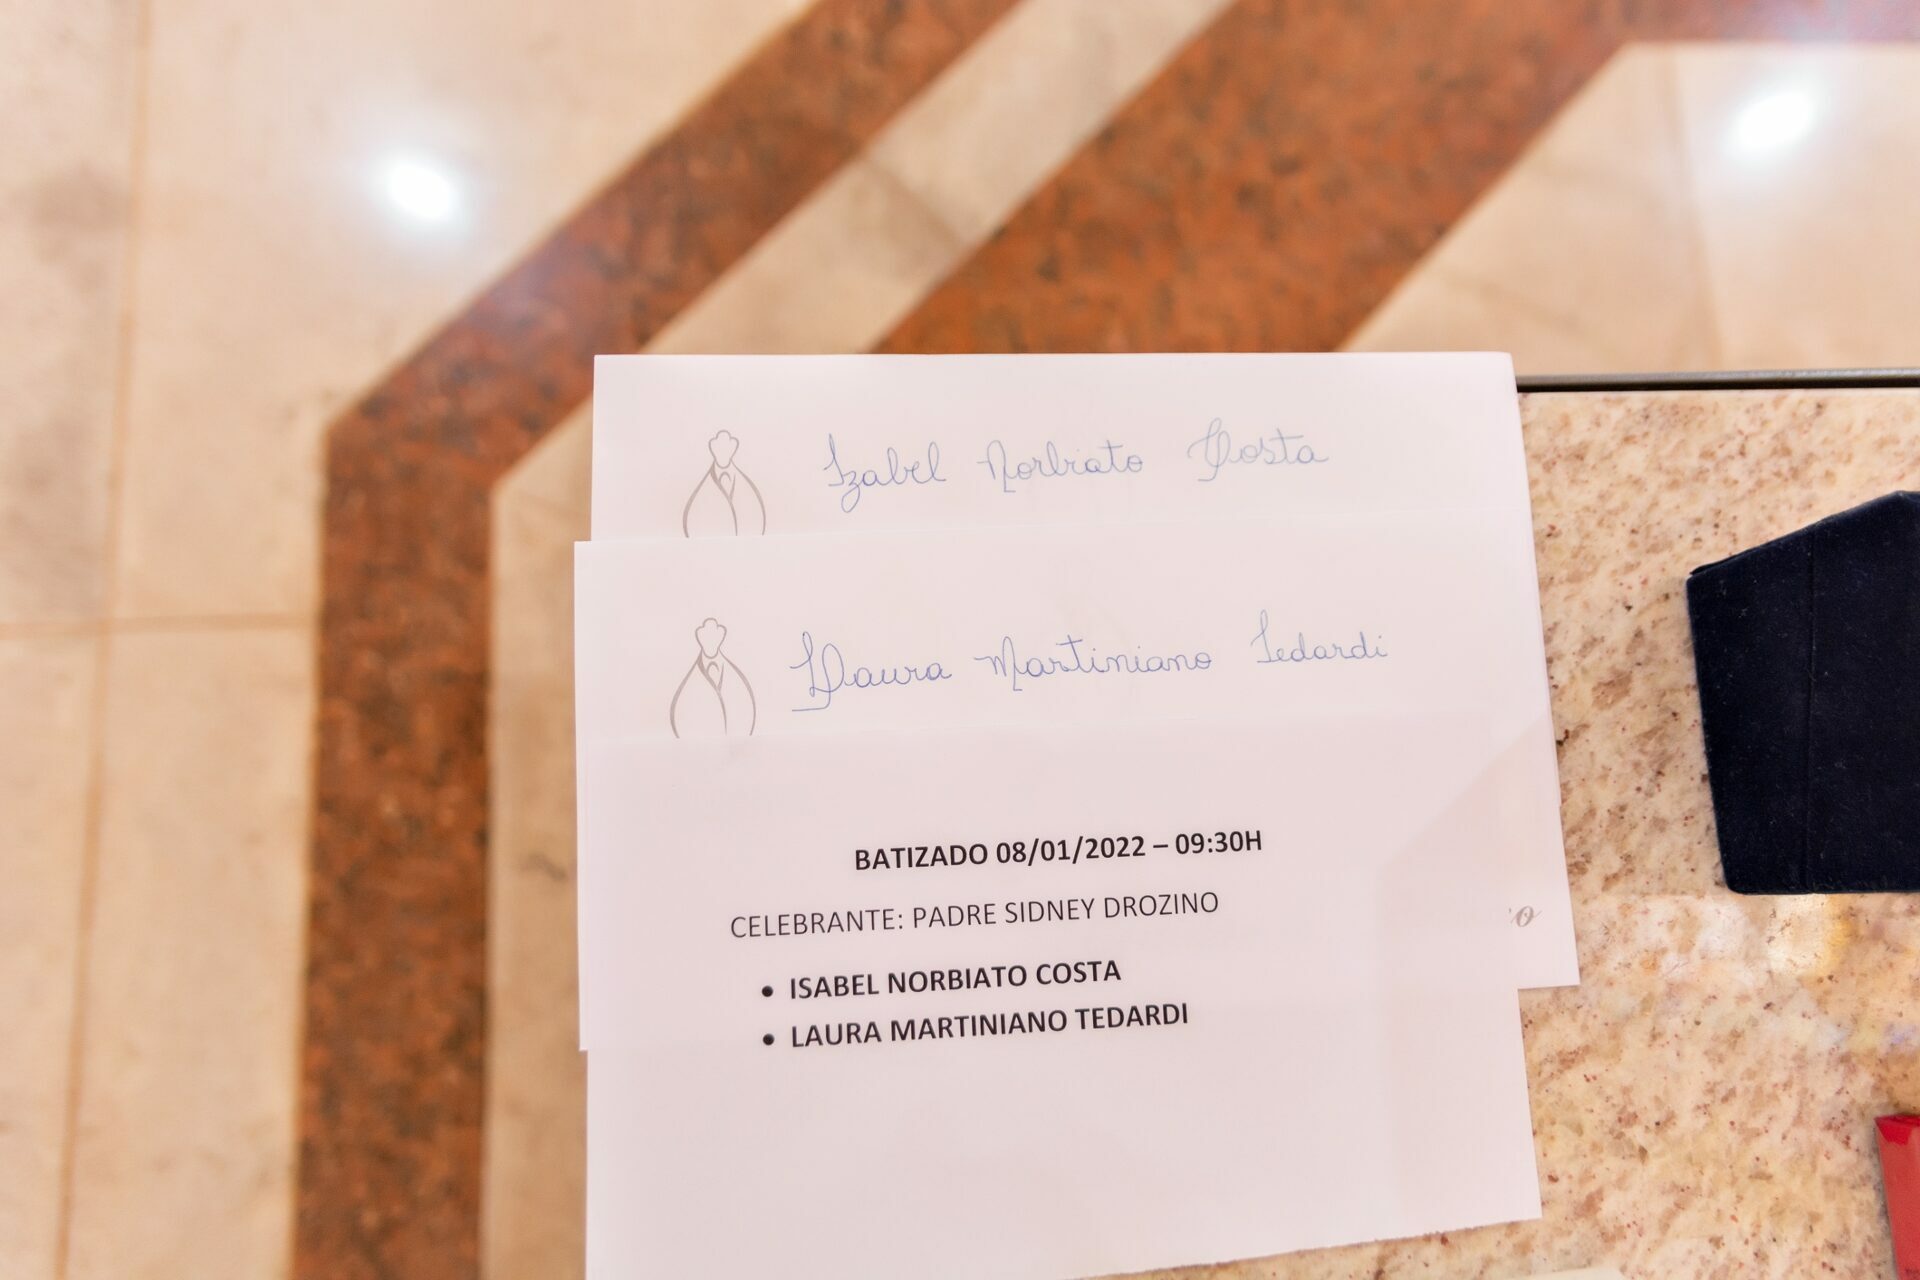 Izabel Norbiato Costa
Laura Martiniano Tedardi
BATIZADO 08/01/2022 – 09:30H
CELEBRANTE: PADRE SIDNEY DROZINO
• ISABEL NORBIATO COSTA
• LAURA MARTINIANO TEDARDI